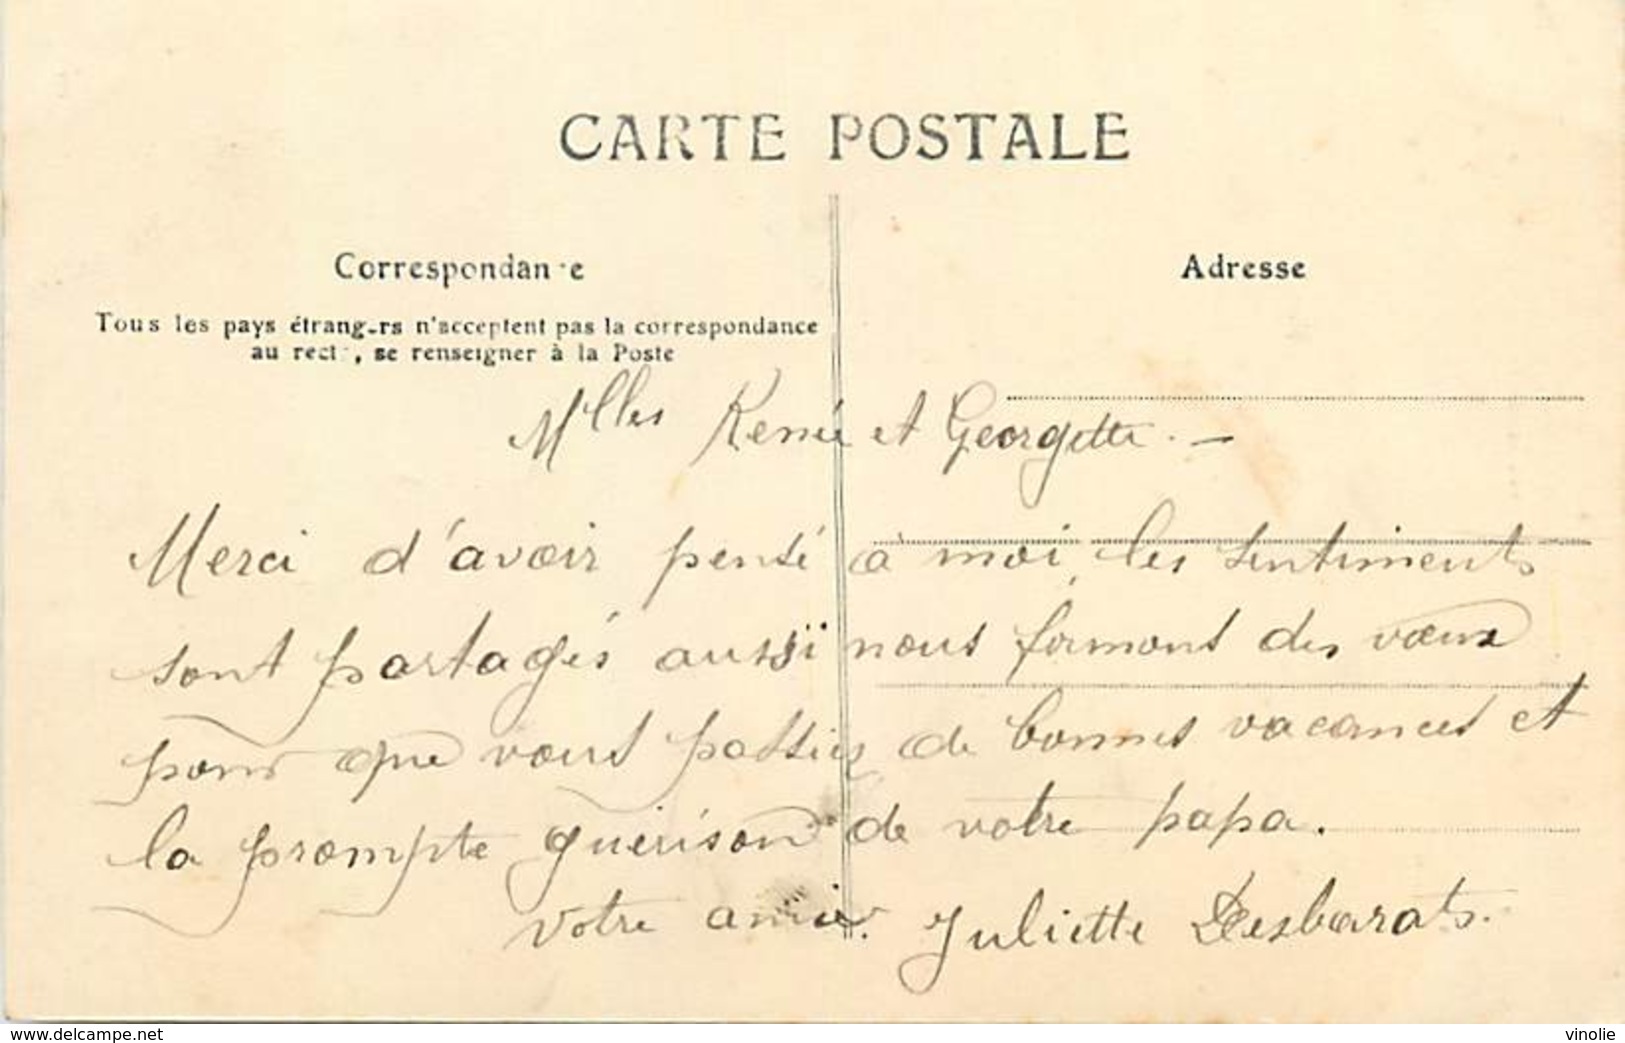 CARTE POSTALE
Correspondance
Adresse
Tous les pays étrangers n'acceptent pas la correspondance
au recto, se renseigner à la Poste
Mlles Renée et Georgette. —
Merci d'avoir pensé à moi, les sentiments
sont partagés aussi nous formons des vœux
pour que vous passiez de bonnes vacances et
la prompte guérison de votre papa.
votre amie. Juliette Desbarats.
www.delcampe.net
vinolie